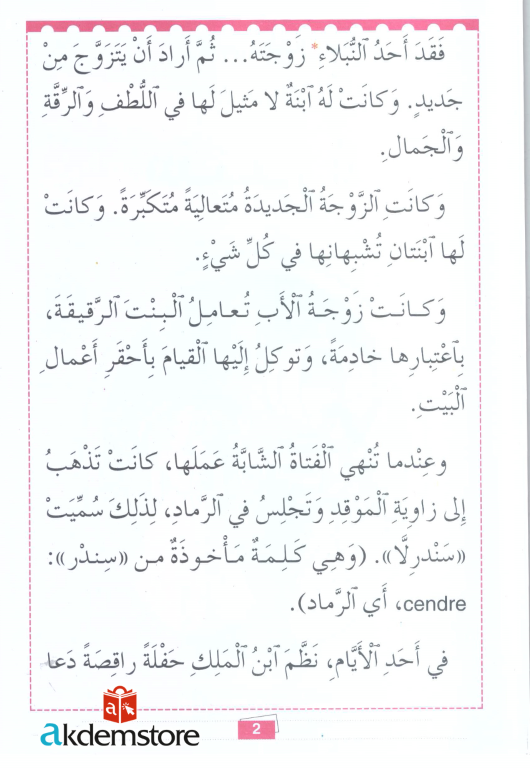 فَقَدَ أَحَدُ ٱلنُّبَلاءِ* زَوْجَتَهُ... ثُمَّ أَرادَ أَنْ يَتَزَوَّجَ مِنْ
جَديدٍ. وَكانَتْ لَهُ ٱبْنَةٌ لا مَثيلَ لَها في ٱللُّطْفِ وَٱلرِّقَّةِ
وَٱلْجَمالِ.
وَكانَتِ ٱلزَّوْجَةُ ٱلْجَديدَةُ مُتَعالِيَةً مُتَكَبِّرَةً. وَكانَتْ
لَها ٱبْنَتانِ تُشْبِهانِها في كُلِّ شَيْءٍ.
وَكـانَـتْ زَوْجَـةُ ٱلْأَبِ تُـعـامِـلُ ٱلْـبِـنْـتَ ٱلـرَّقيقَةَ،
بِٱعْتِبارِها خادِمَةً، وَتوكِلُ إِلَيْها ٱلْقيامَ بِأَحْقَرِ أَعْمالِ
ٱلْبَيْتِ.
وعِنْدما تُنْهي ٱلْفَتاةُ ٱلشَّابَّةُ عَمَلَها، كانَتْ تَذْهَبُ
إِلى زاوِيَةِ ٱلْمَوْقِدِ وَتَجْلِسُ في ٱلرَّمادِ، لِذَلِكَ سُمِّيَتْ
«سَنْدرِلَّا». (وَهِـي كَـلِـمَـةٌ مَـأْخـوذَةٌ مـن «سِـنـدْر»:
cendre، أَي ٱلرَّماد).
في أَحَدِ ٱلْأَيَّامِ، نَظَّمَ ٱبْنُ ٱلْمَلِكِ حَفْلَةً راقِصَةً دَعا
2
a
akdemstore